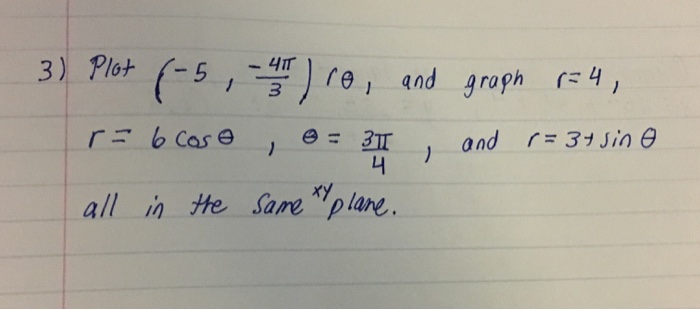 3) Plot (-5, -4π/3) rθ, and graph r=4,
r= 6 cosθ, θ = 3π/4, and r= 3+sin θ
all in the same xy plane.